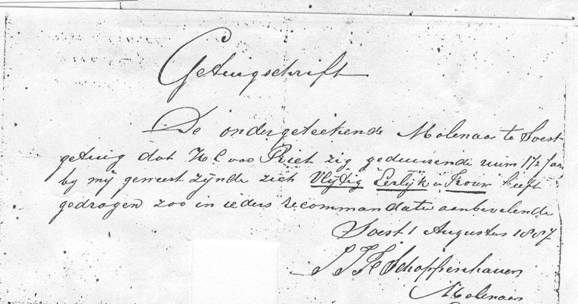 Getuigschrift
De ondergeteekende Molenaar te Soest
getuig dat H C van Riet zig gedurende ruim 1½ Jaar
by mij geweest zijnde zich Vlijtig Eerlijk en Trouw heeft
gedragen zoo in ieders recommandatie aanbevelende
Soest 1 Augustus 1887
Schoppenhauer
Molenaar